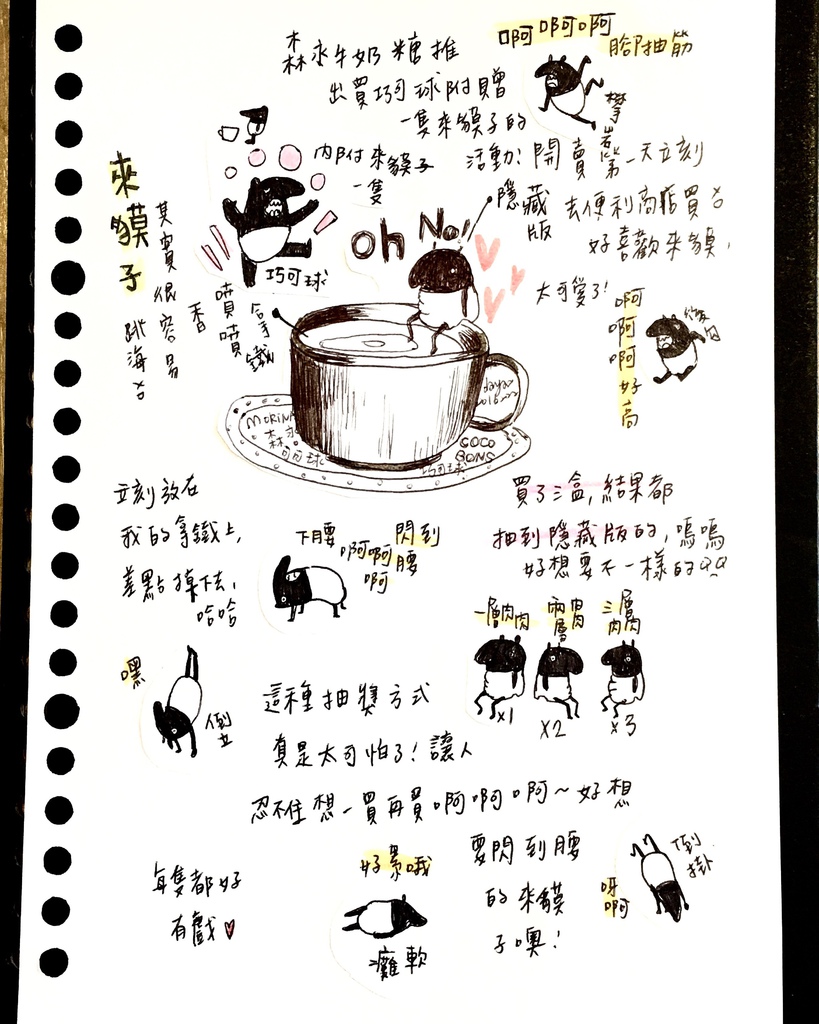 森永牛奶糖推
出買巧可球附贈
一隻來貘子的
活動!開賣第一天立刻
去便利商店買
好喜歡來貘,
太可愛了!
啊啊啊啊
腳抽筋
攀岩
內附來貘子
一隻
巧可球
來貘子
其實很容易
跳海
香噴噴
拿鐵
oh No!
隱藏版
啊啊啊好高
MORINA
森永
可可球
巧可球
COCO
BONG
立刻放在
我的拿鐵上,
差點掉下去,
哈哈
下腰
啊啊啊
閃到腰
買了三盒,結果都
抽到隱藏版的,嗚嗚
好想要不一樣的QQ
一層肉肉
兩層肉肉
三層肉肉
x1
x2
x3
嘿
倒立
這種抽獎方式
真是太可怕了!讓人
忍不住想一買再買啊啊啊~好想
要閃到腰
的來貘
子噢!
每隻都好
有戲
好累哦
癱軟
呀啊
倒掛